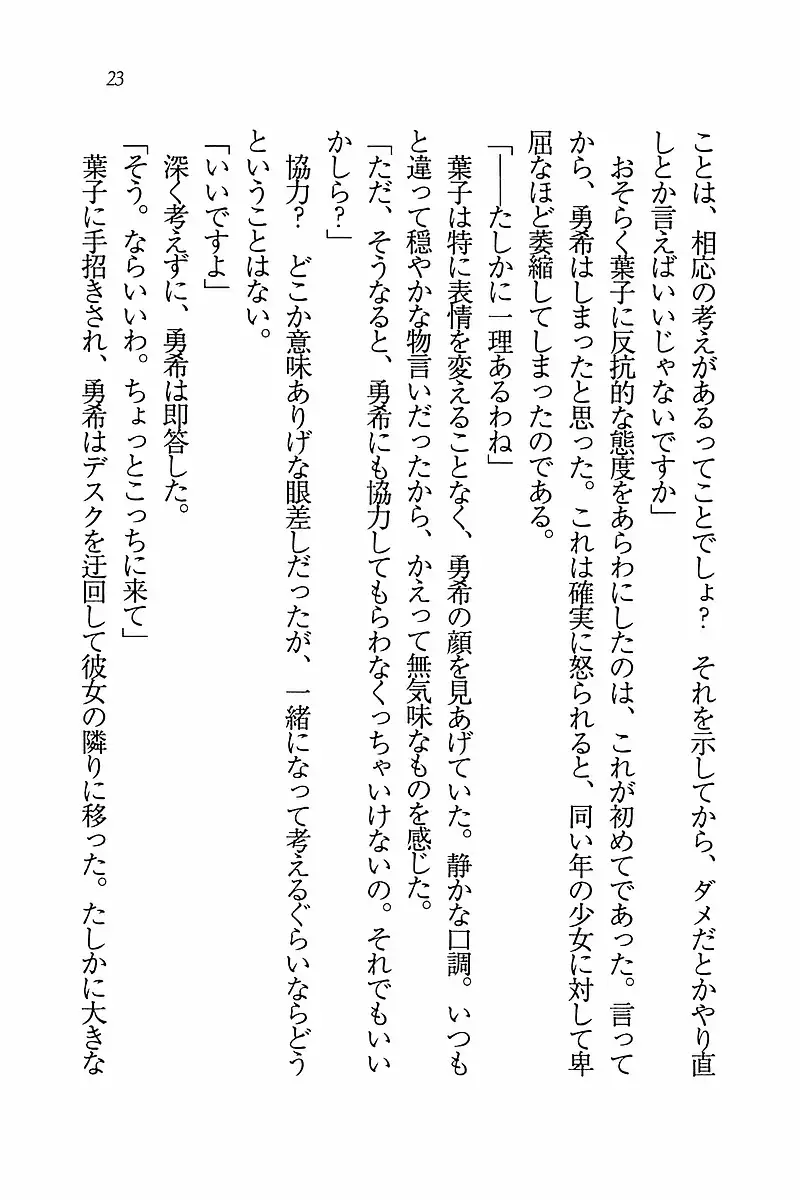 23
ことは、相応の考えがあるってことでしょ?　それを示してから、ダメだとかやり直
しとか言えばいいじゃないですか」
　おそらく葉子に反抗的な態度をあらわにしたのは、これが初めてであった。言って
から、勇希はしまったと思った。これは確実に怒られると、同い年の少女に対して卑
屈なほど萎縮してしまったのである。
「――たしかに一理あるわね」
　葉子は特に表情を変えることなく、勇希の顔を見あげていた。静かな口調。いつも
と違って穏やかな物言いだったから、かえって無気味なものを感じた。
「ただ、そうなると、勇希にも協力してもらわなくっちゃいけないの。それでもいい
かしら?」
　協力?　どこか意味ありげな眼差しだったが、一緒になって考えるぐらいならどう
ということはない。
「いいですよ」
　深く考えずに、勇希は即答した。
「そう。ならいいわ。ちょっとこっちに来て」
　葉子に手招きされ、勇希はデスクを迂回して彼女の隣りに移った。たしかに大きな